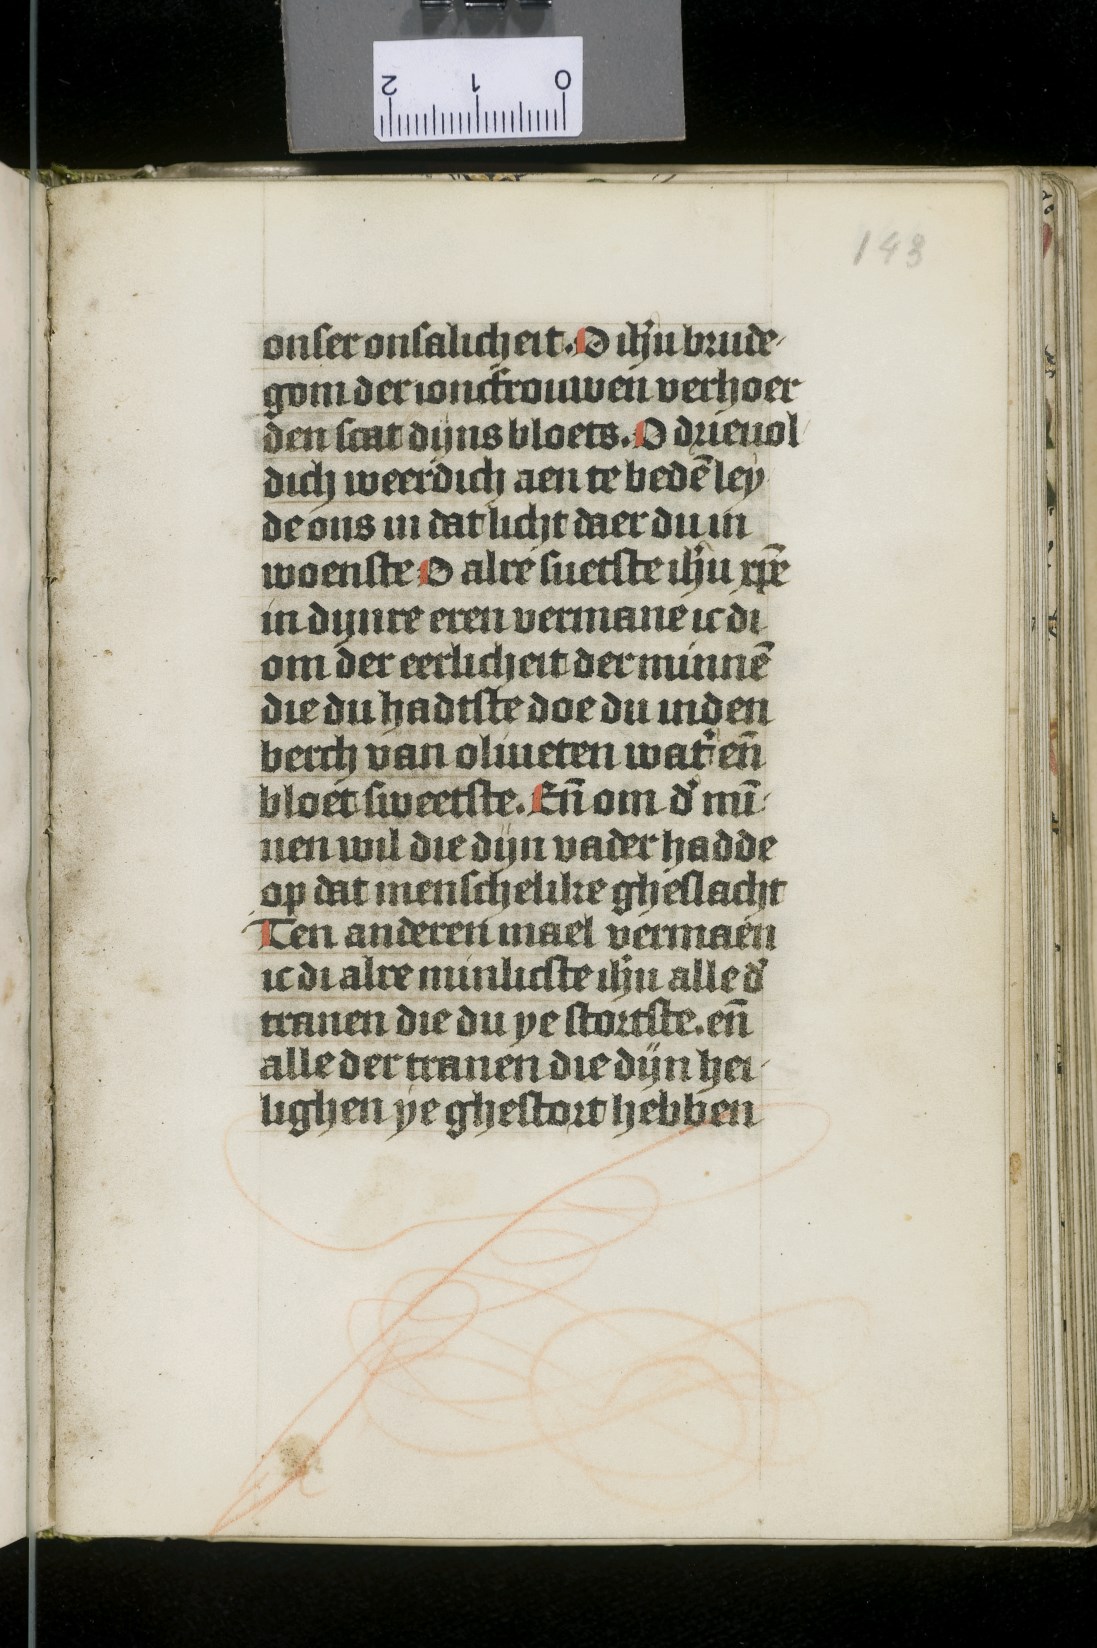 2 1 0
143
onser onsalicheit. O ihu brude
gom der ioncfrouwen verhoer
den scat dijns bloets. O drieuol
dich weerdich aen te bedē ley
de ons in dat licht daer du in
woenste O alre suetste ihu xpē
in dijnre eren vermane ic di
om der eerlicheit der minnē
die du hadtste doe du inden
berch van oliueten wat' en̄
bloet sweetste. En̄ om d' mī
nen wil die dijn vader hadde
op dat menschelike gheslacht
Ten anderen mael vermaen
ic di alre minlicste ihu alle d'
tranen die du ye stortste. en̄
alle der tranen die dijn hei
lighen ye ghestort hebben